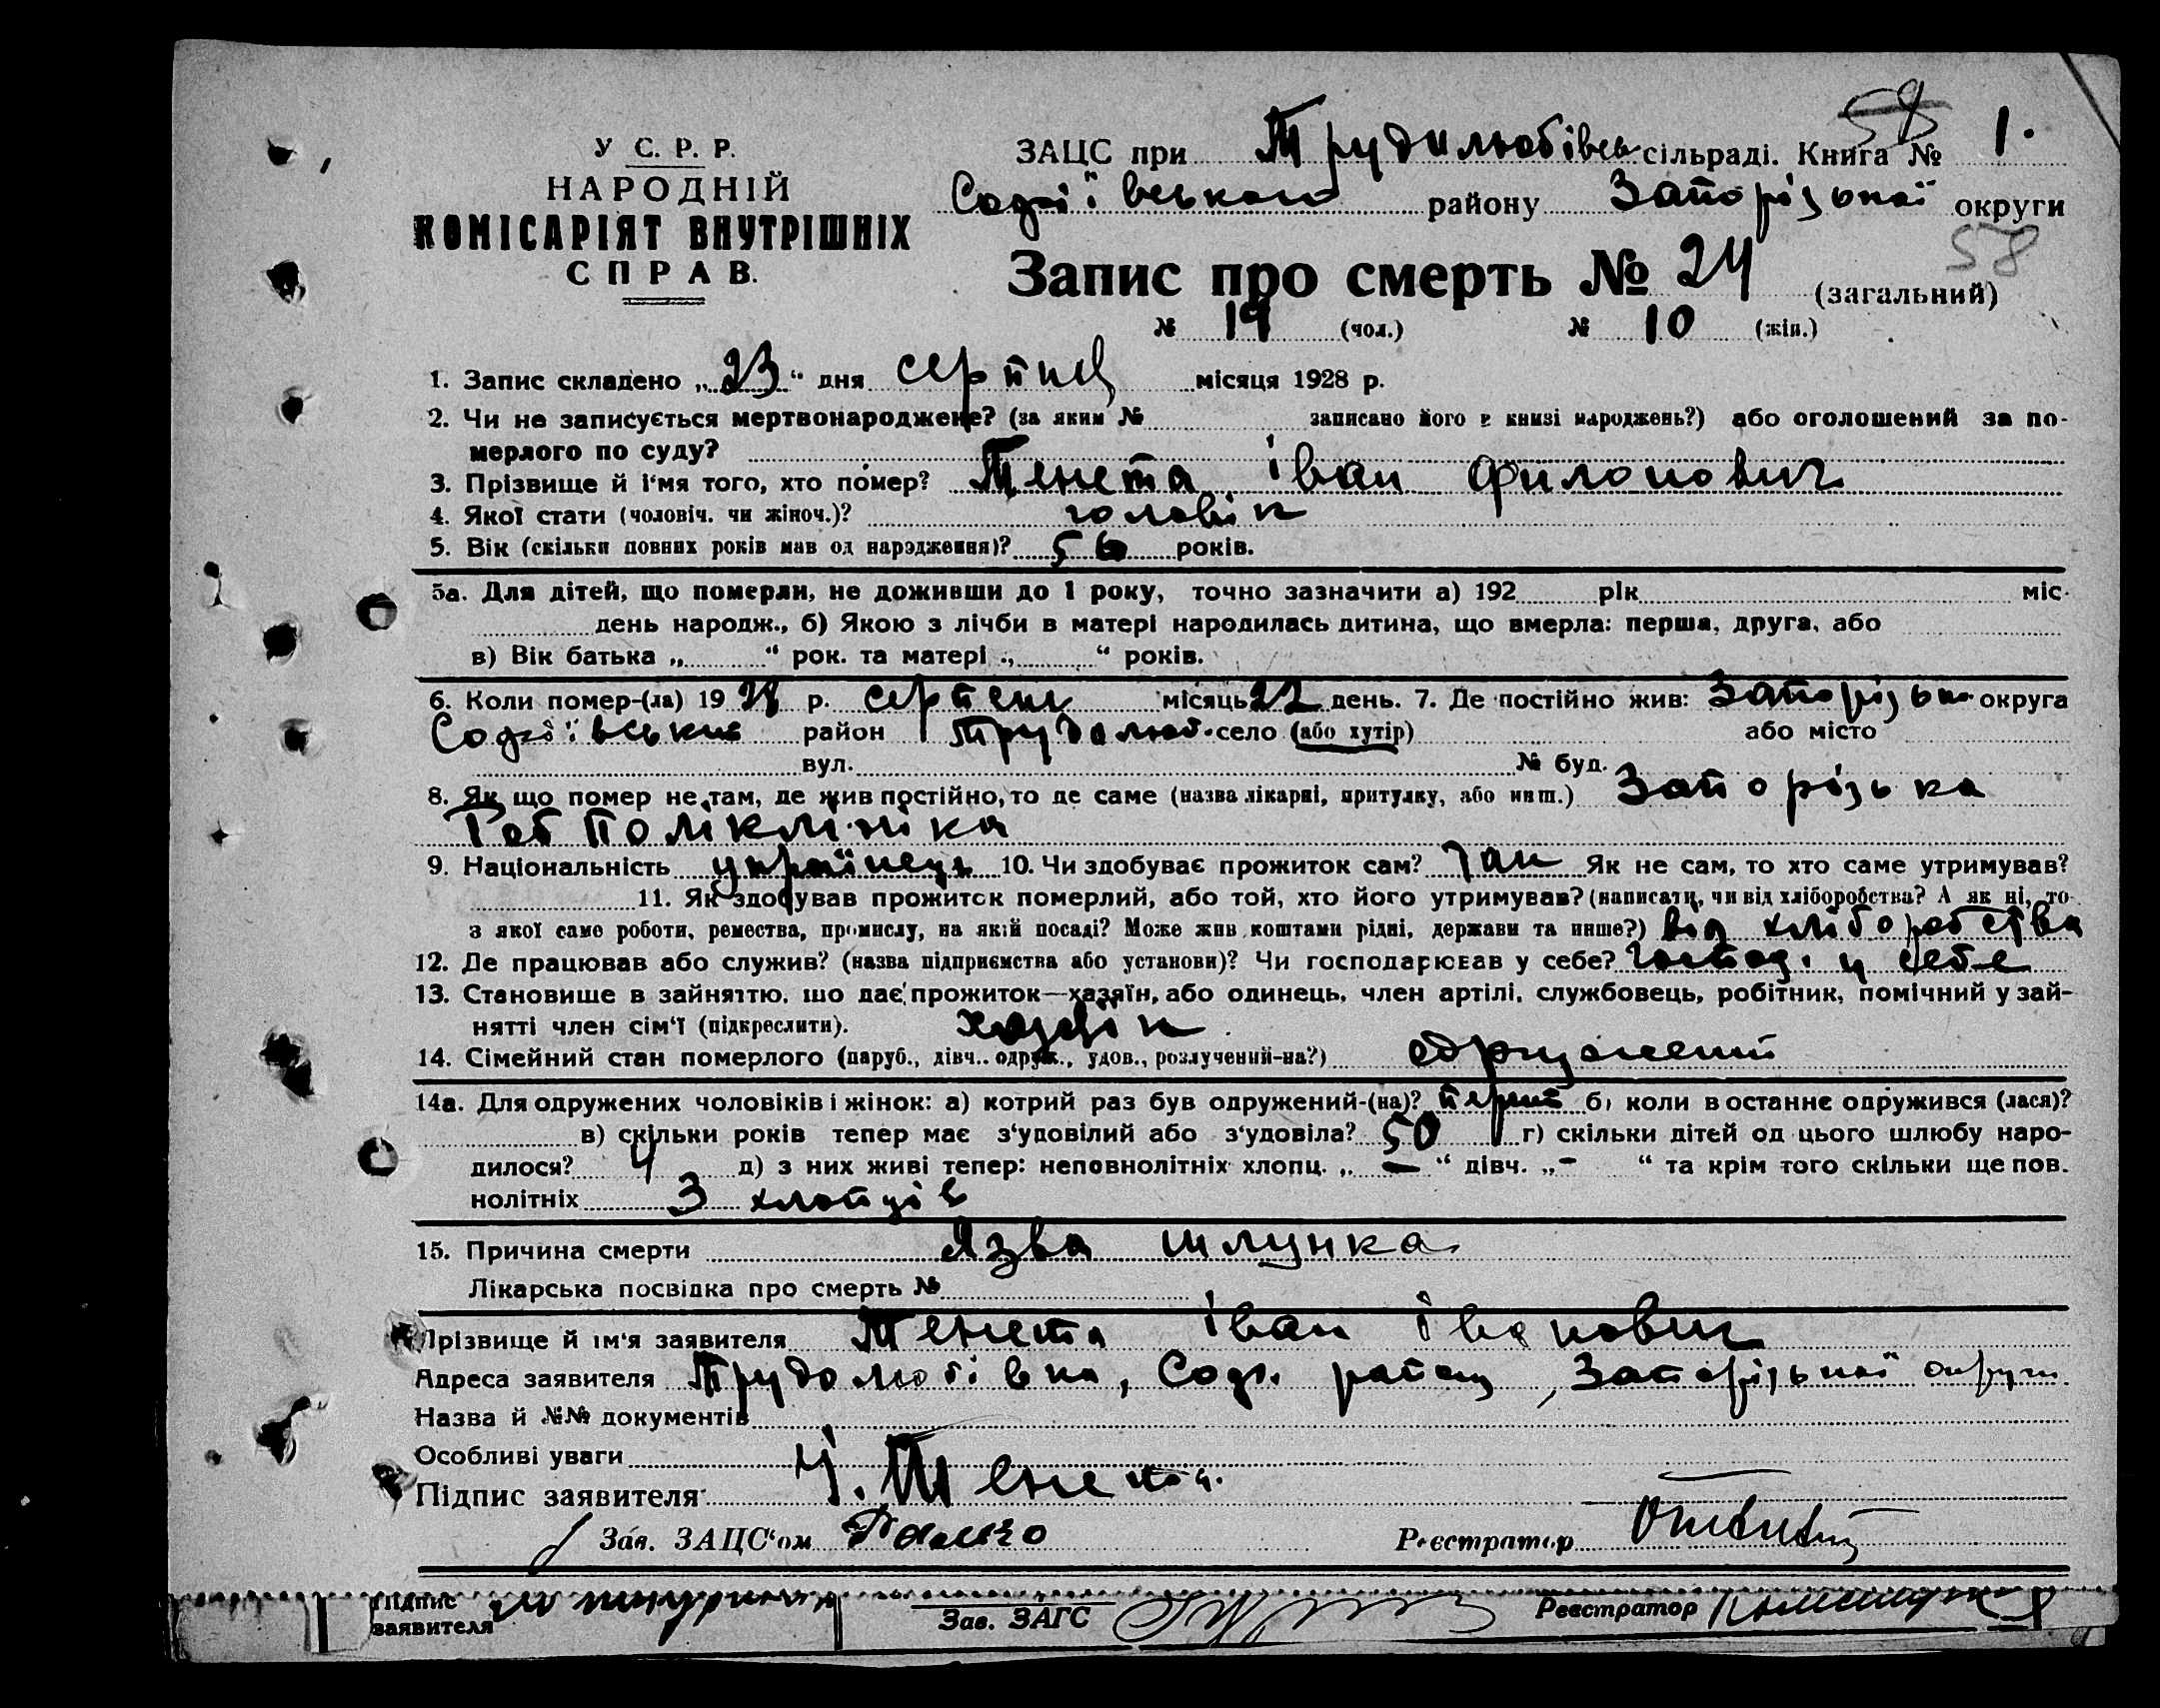 58 1.
У С. Р. Р.
ЗАЦС при Трудилюбівськ сільраді. Книга №
НАРОДНІЙ
Софіївського району Запорізької округи
КОМІСАРІЯТ ВНУТРІШНІХ
СПРАВ.
58
Запис про смерть № 24 (загальний)
№ 14 (чол.) № 10 (жін.)
1. Запис складено „23“ дня серпня місяця 1928 р.
2. Чи не записується мертвонароджене? (за яким № записано його в книзі народжень?) або оголошений за по-
мерлого по суду?
3. Прізвище й і'мя того, хто помер? Тенета Іван Филонович
4. Якої стати (чоловіч. чи жіноч.)? чоловік
5. Вік (скільки повних років мав од народження)? 56 років.
5а. Для дітей, що померли, не доживши до 1 року, точно зазначити а) 192 рік міс.
день народж., б) Якою з лічби в матері народилась дитина, що вмерла: перша, друга, або
в) Вік батька „ “ рок. та матері „ “ років.
6. Коли помер-(ла) 1928 р. серпень місяць 22 день. 7. Де постійно жив: Запорізька округа
Софіївський район Трудолюб. село (або хутір) або місто
вул. № буд.
8. Як що помер не там, де жив постійно, то де саме (назва лікарні, притулку, або инш.) Запорізька
Поліклініка
9. Національність українець 10. Чи здобуває прожиток сам? Так Як не сам, то хто саме утримував?
11. Як здобував прожиток померлий, або той, хто його утримував? (написати, чи від хліборобства? А як ні, то
з якої саме роботи, ремества, промислу, на якій посаді? Може жив коштами рідні, держави та инше?) від хліборобства
12. Де працював або служив? (назва підприємства або установи)? Чи господарював у себе? господ. у себе
13. Становище в зайняттю, що дає прожиток—хазяїн, або одинець, член артілі, службовець, робітник, помічний у зай-
нятті член сім'ї (підкреслити). хазяїн
14. Сімейний стан померлого (паруб., дівч., одруж., удов., розлучений-на?) одружений
14а. Для одружених чоловіків і жінок: а) котрий раз був одружений-(на)? перший б) коли в останнє одружився (лася)?
в) скільки років тепер має з'удовілий або з'удовіла? 50 г) скільки дітей од цього шлюбу наро-
дилося? 4 д) з них живі тепер: неповнолітніх хлопц. „ — “ дівч. „ - “ та крім того скільки ще пов.
нолітніх 3 хлопців
15. Причина смерти Язва шлунка
Лікарська посвідка про смерть №
Прізвище й ім'я заявителя Тенета Іван Іванович
Адреса заявителя Трудолюбівка, Соф. району, Запорізької округи
Назва й №№ документів
Особливі уваги
Підпис заявителя І. Тенета.
Зав. ЗАЦС'ом Реєстратор
Підпис
заявителя Зав. ЗАГС Реєстратор